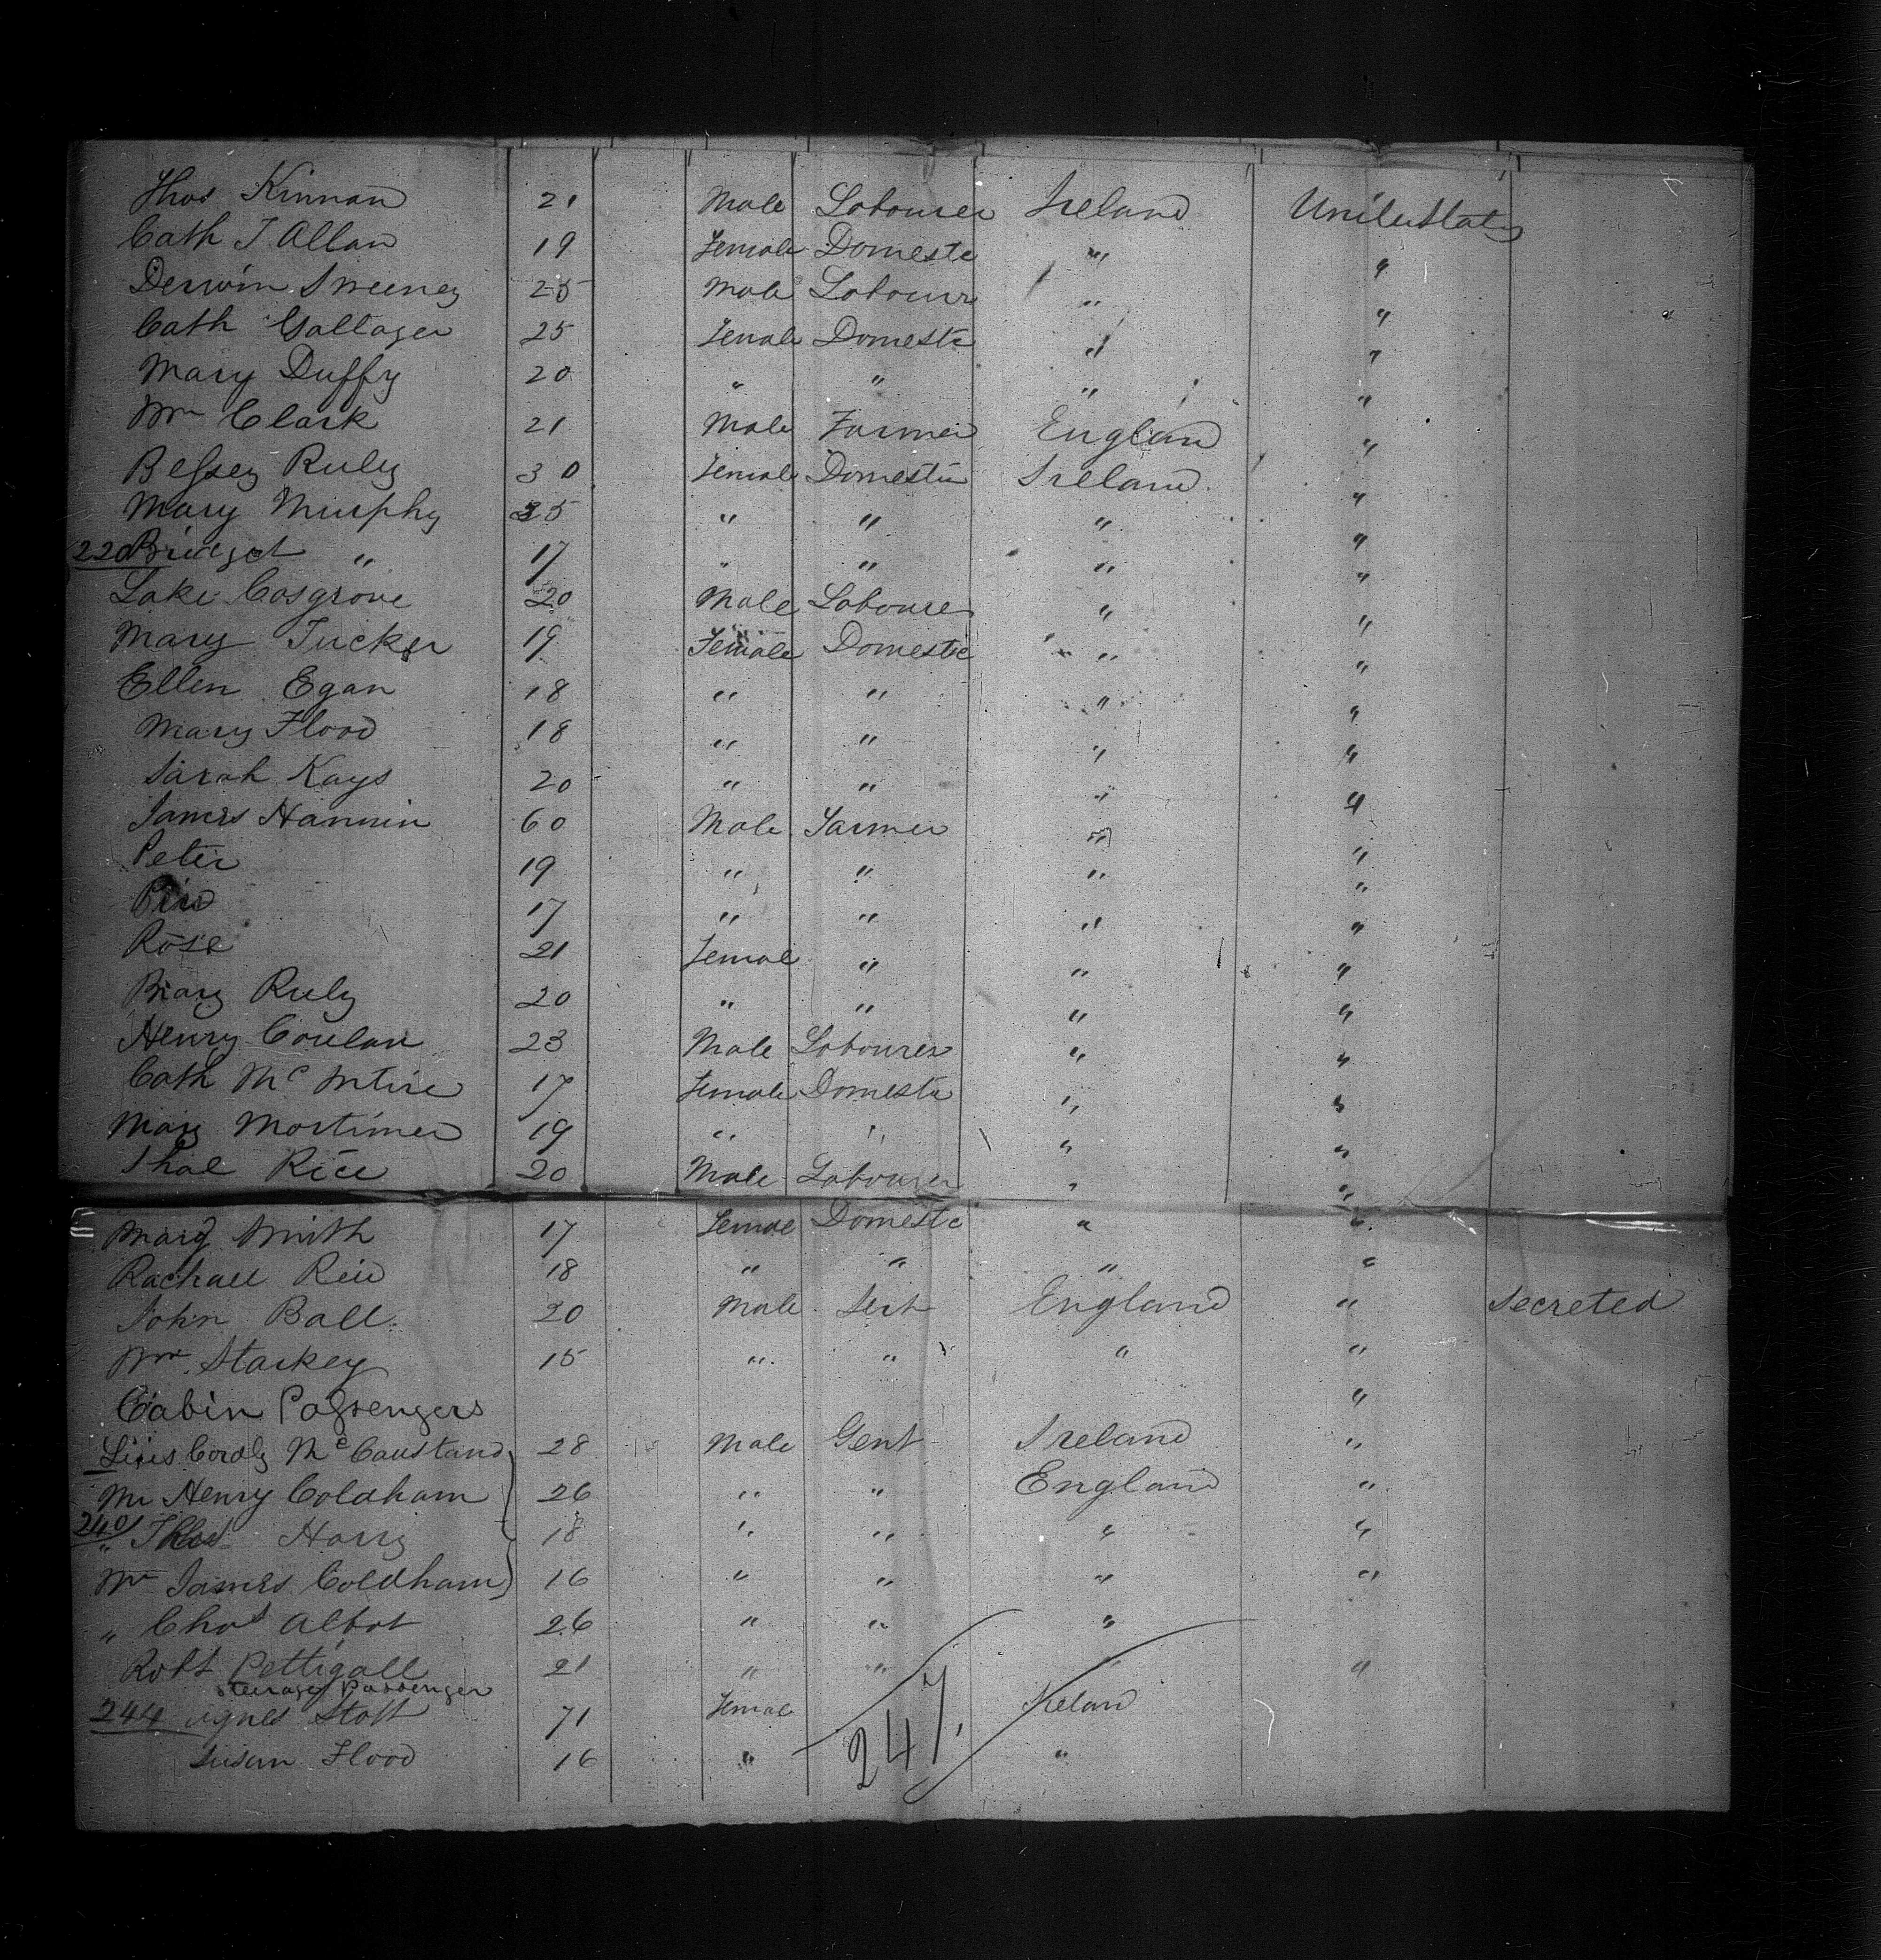 Thos Kinnan 21 Male Labourer Ireland United States
Cath J Allan 19 Female Domestc " "
Derwin Sweeney 25 Male Labourr " "
Cath Gallager 25 Female Domestc " "
Mary Duffy 20 " " " "
Wm Clark 21 Male Farmer England "
Bessey Rily 30 Female Domestic Ireland "
Mary Murphy 35 " " " "
220 Bridget " 17 " " " "
Luke Cosgrove 20 Male Labourer " "
Mary Tucker 19 Female Domestic " "
Ellen Egan 18 " " " "
Mary Flood 18 " " " "
Sarah Kays 20 " " " "
James Hannin 60 Male Farmer " "
Peter 19 " " " "
17 " " " "
Rose 21 Femal " " "
Mary Rily 20 " " " "
Henry Conlan 23 Male Labourer " "
Cath McIntire 17 Female Domestic " "
Mary Mortimer 19 " " " "
Rice 20 Male Labourer " "
Mary Smith 17 Female Domestc " "
Rachael Reid 18 " " " "
John Ball 20 Male England " Secreted
Wm Starkey 15 " " " "
Cabin Passengers "
McCausland 28 Male Gent Ireland "
Mr Henry Coldham 26 " " England "
240 " Harry 18 " " " "
Mr James Coldham 16 " " " "
" Chas Albot 26 " " "
Robt Pettigall 21 " " " "
Steerage Passenger
244 Agnes Stott 71 Femal Ireland
Susan Flood 16 " "
247